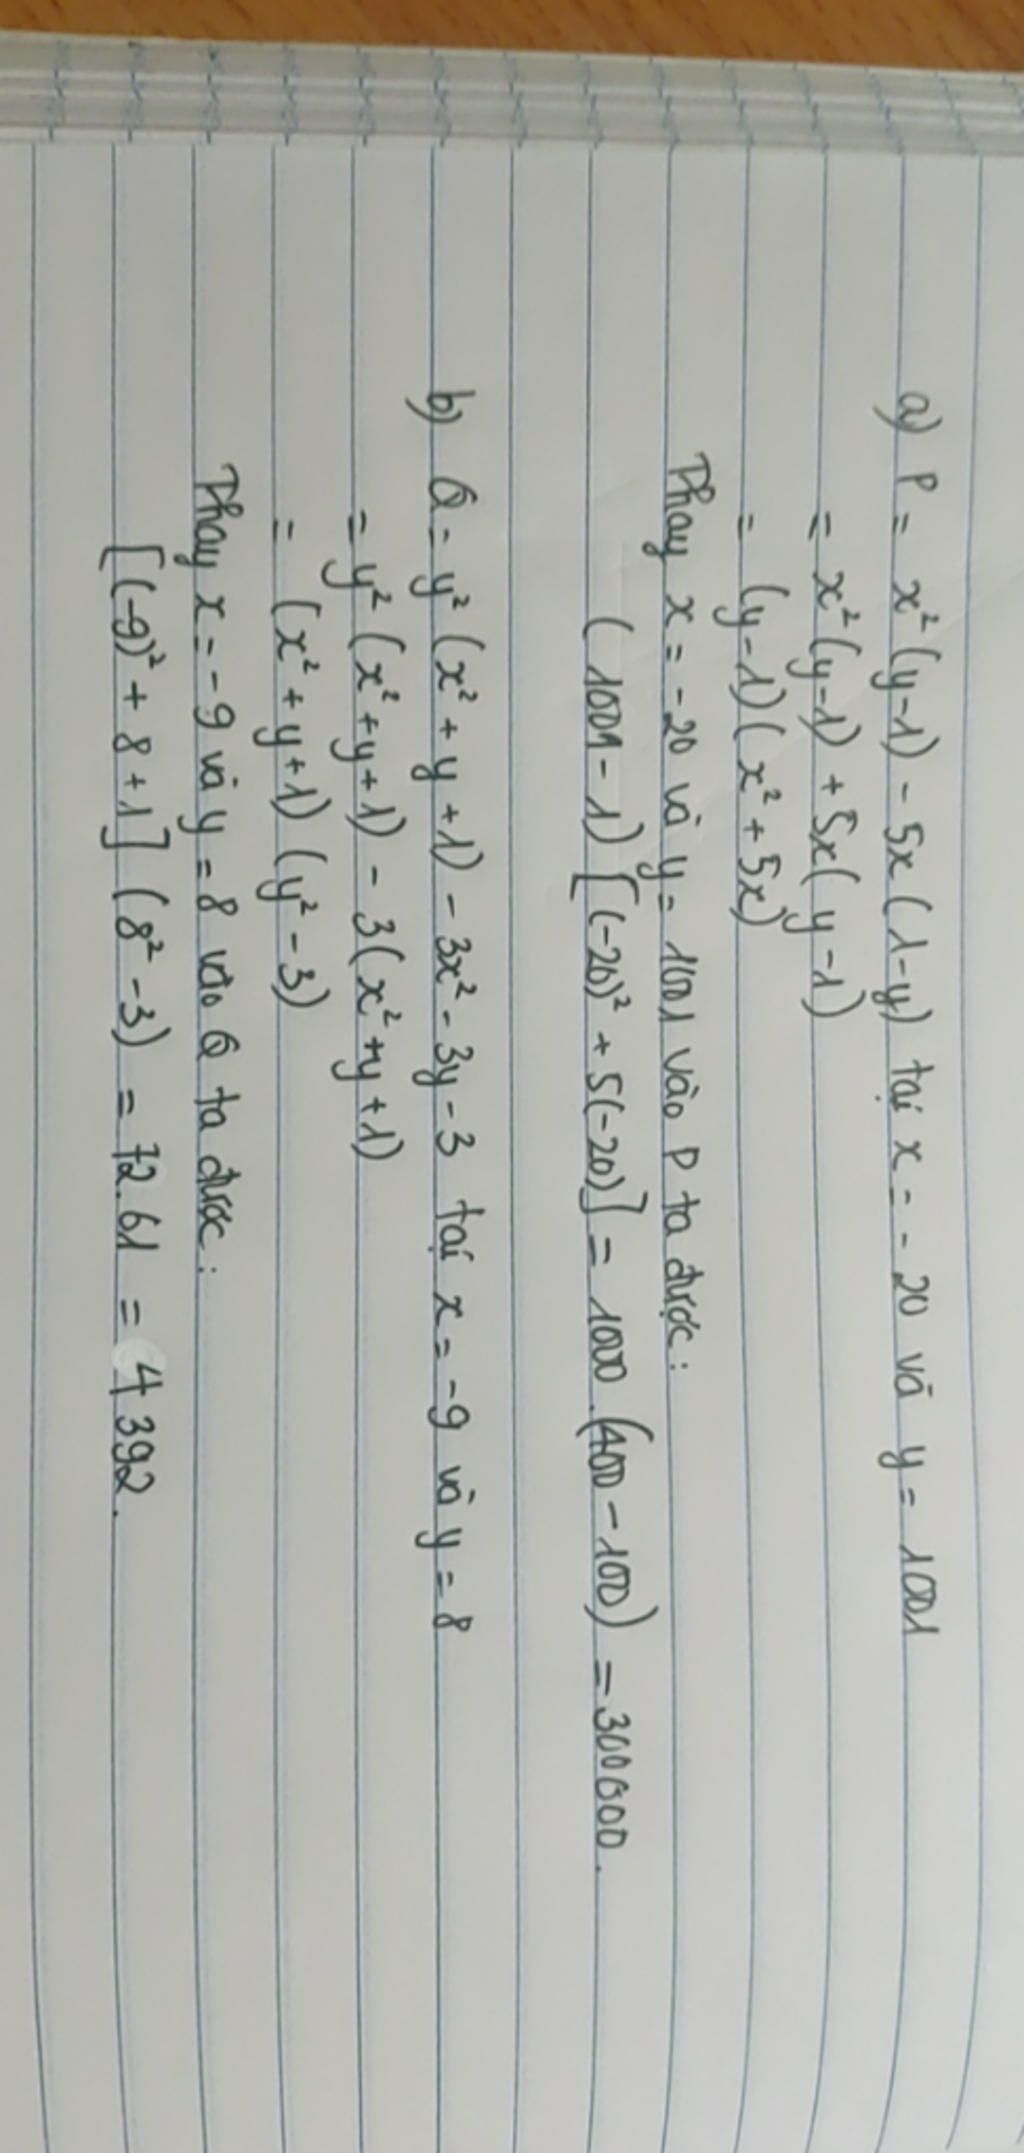 a) P = x² (y-1) - 5x (1-y) tại x = - 20 và y = 1001
= x² (y-1) + 5x (y-1)
= (y-1) (x² + 5x)
Thay x = -20 và y = 1001 vào P ta được :
(1001 - 1) [(-20)² + 5(-20)] = 1000 . (400 - 100) = 300000.
b) Q = y² (x² + y + 1) - 3x² - 3y - 3 tại x = -9 và y = 8
= y² (x² + y + 1) - 3 (x² + y + 1)
= (x² + y + 1) (y² - 3)
Thay x = - 9 và y = 8 vào Q ta được :
[(-9)² + 8 + 1] (8² - 3) = 72.61 = 4392.